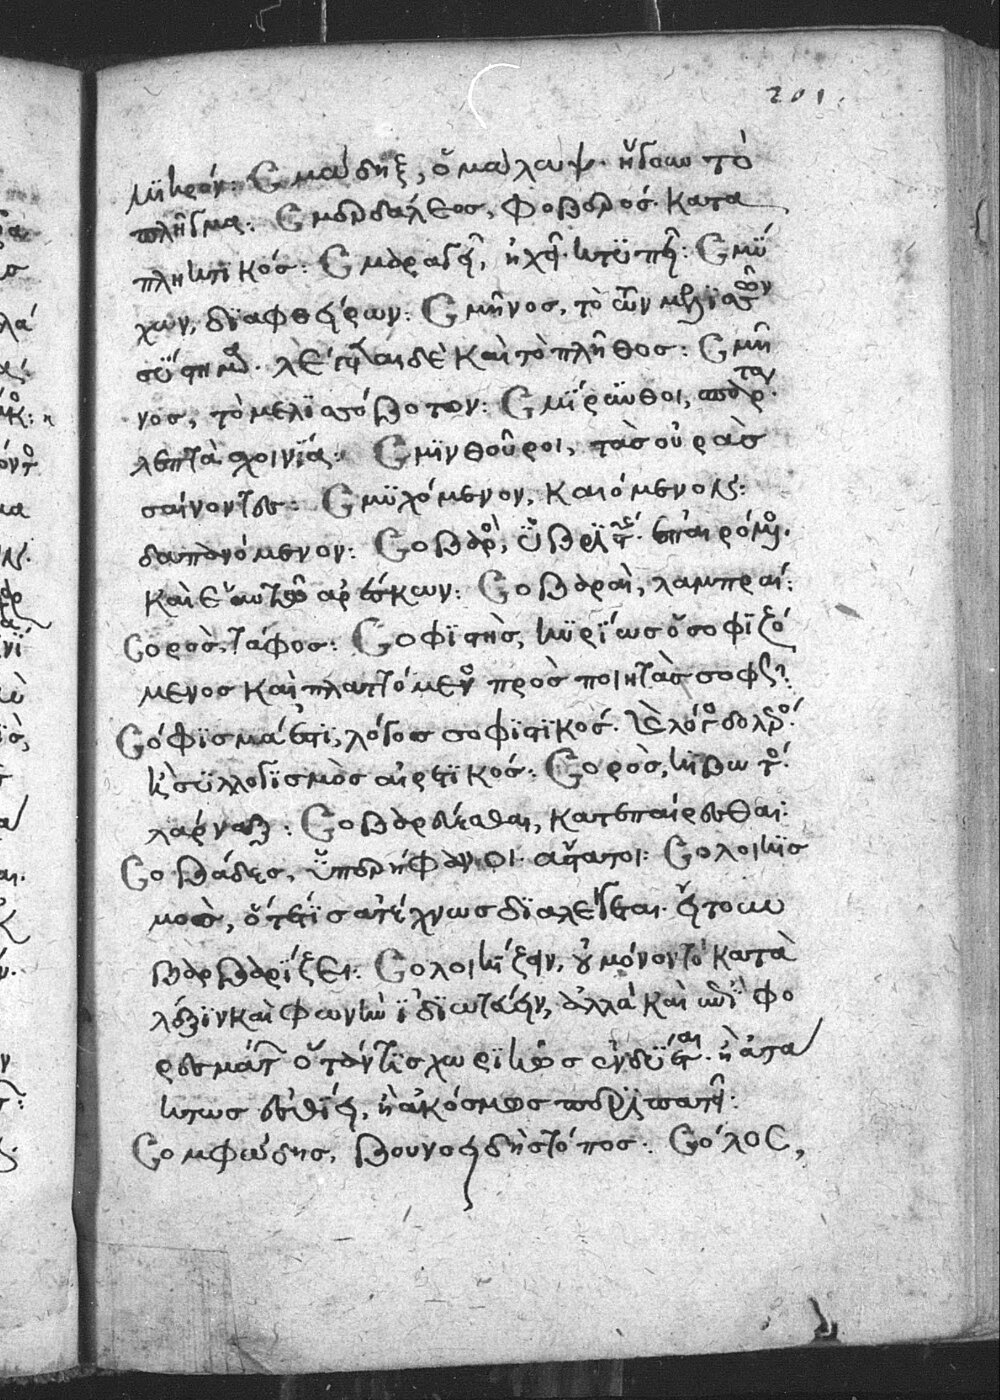 201
μικρόν: Σμώδηξ, ὁ μώλωψ. ἤγουν τὸ
πλῆγμα: Σμερδαλέος, φοβερός. κατα
πληκτικός: Σμαραγεῖ, ἠχεῖ. κτυπεῖ: Σμύ
χων, διαφθείρων: Σμῆνος, τὸ τῶν μελισσῶν
σύστημα. λέγεται δὲ καὶ τὸ πλῆθος: Σμῆ
νος, τὸ μελισσόβοτον: Σμίρινθοι,
λεπτὰ σχοινία: Σμινθοῦροι, τὰς οὐρὰς
σαίνοντες: Σμυχόμενον, καιόμενον:
δαπανόμενον: Σοβαρὸς, ὑβριστής. ἐπαιρόμενος.
καὶ ἑαυτῷ ἀρέσκων: Σοβαραὶ, λαμπραί:
Σορὸς, τάφος: Σοφιστὴς, κυρίως ὁ σοφιζό
μενος καὶ πλαττόμενος πρὸς ποιητὰς σοφ
Σόφισμά ἐστι, λόγος σοφιστικός. λόγος δολερός.
καὶ συλλογισμὸς αἱρετικός: Σορὸς, κιβωτός.
λάρναξ: Σοβαρεύεσθαι, κατεπαίρεσθαι:
Σοβάδες, ὑπερήφανοι. Σολοικισ
μὸς, ὅτέ τις ἀτέχνως διαλέγεται. ἤτοι
βαρβαρίζει: Σολοικίζειν, οὐ μόνον τὸ κατὰ
λέξιν καὶ φωνὴν ἰδιωτεύειν, ἀλλὰ καὶ ἐπὶ φο
ρεμάτων ὅταν τις χωρικῶς ἐνδύεται. ἢ ἀτά
κτως ἐσθίει, ἢ ἀκόσμως περιπατεῖ:
Σομφώδης, βουνοειδὴς τόπος: Σόλος,